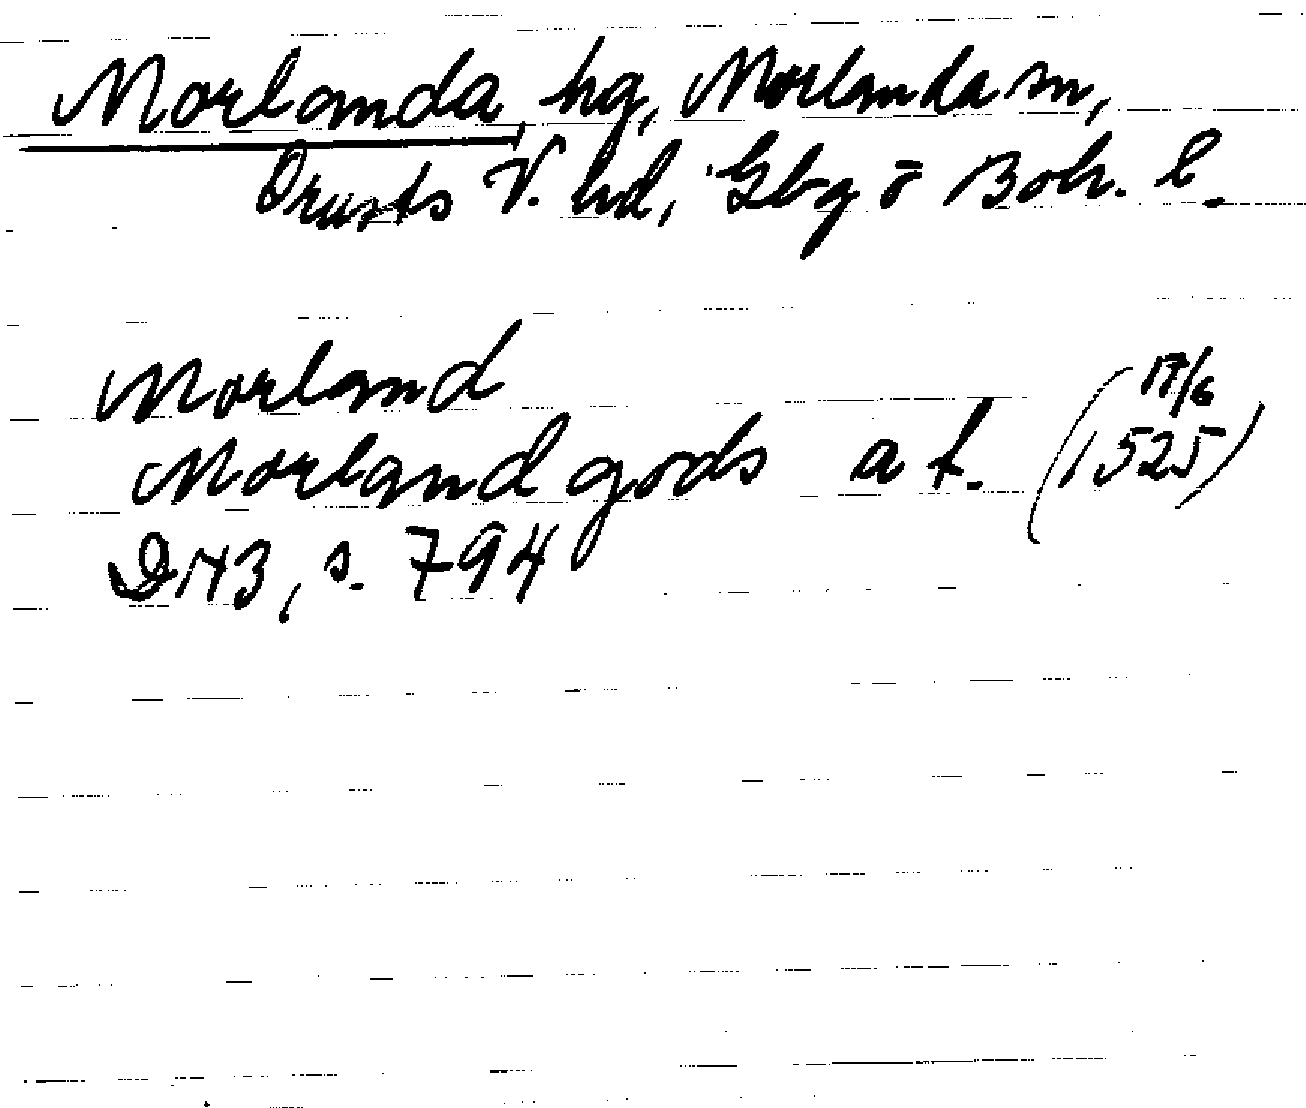 Morlanda, hg, Morlanda sn,
Orusts V. hd, Gbg o Boh. l.
Morland
Morland gods a f. (17/6 1525)
DN 3, s. 794